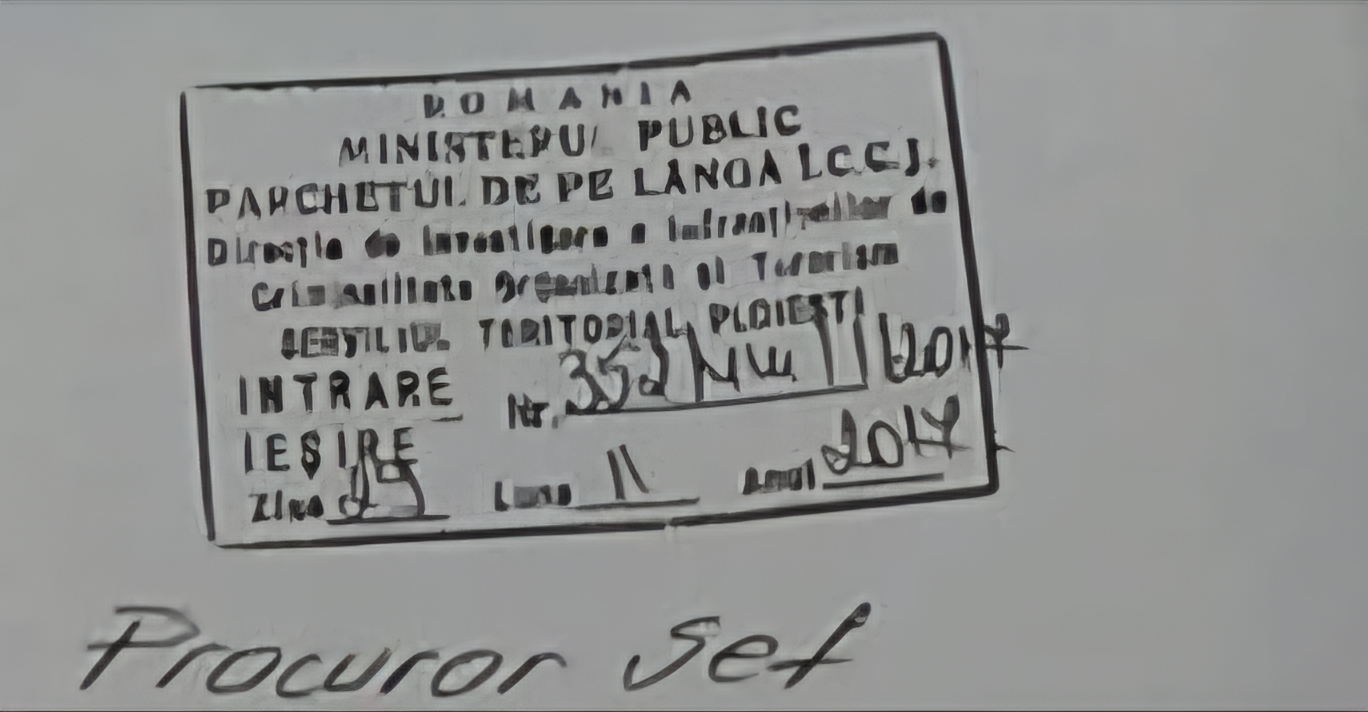 ROMANIA
MINISTERUL PUBLIC
PARCHETUL DE PE LANGA I.C.C.J.
Direcția de Investigare a Infracțiunilor de
Criminalitate Organizata și Terorism
SERVICIUL TERITORIAL PLOIESTI
INTRARE
Nr. 352 II 2017
IEȘIRE
Ziua 29 Luna 11 Anul 2017
Procuror Sef